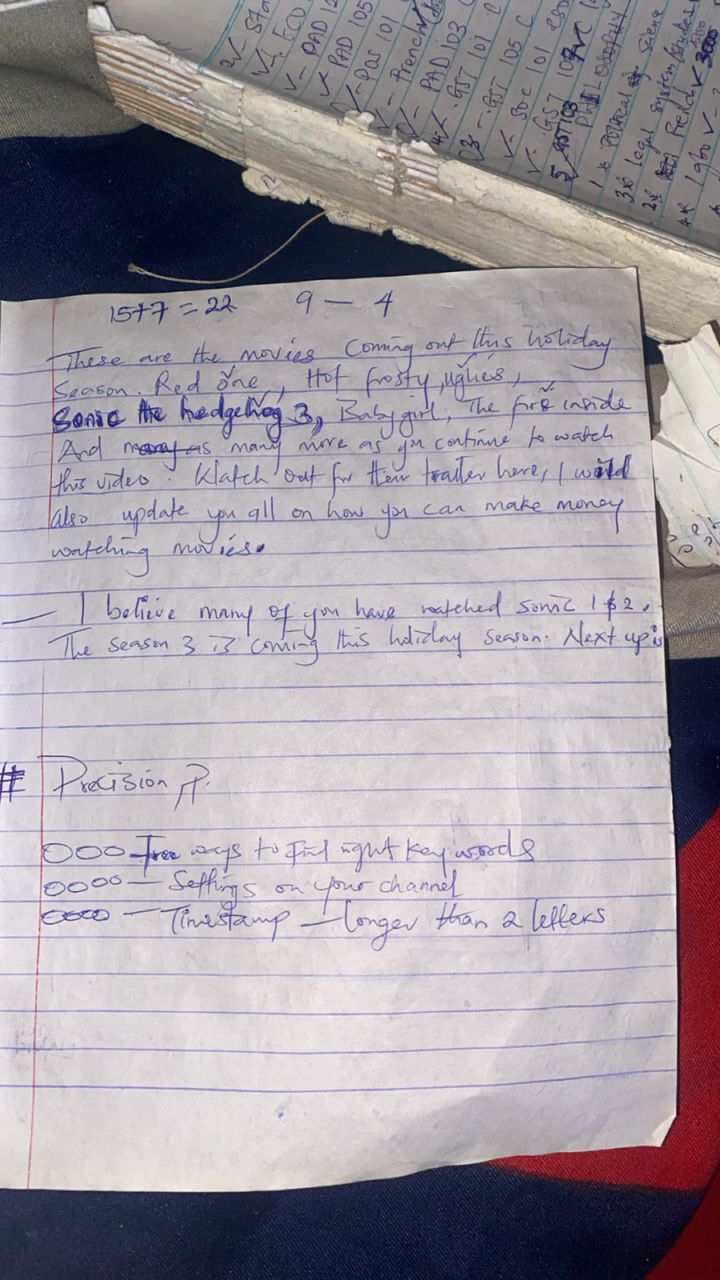 ECO
PAD 105
POS 101
French
PAD 103
GST 101
GST 105 C
SOC 101
GST 107
PHILOSOPHY
Political Science
3 legal system
French
Igbo
15+7 = 22 9 – 4
These are the movies Coming out this holiday
Season. Red one, Hot frosty, uglies,
Sonic the hedgehog 3, Babygirl, The fire inside
And many as many more as you continue to watch
this video. Watch out for their trailer here, I would
also update you all on how you can make money
watching movies.
— I believe many of you have watched sonic 1 & 2.
The season 3 is coming this holiday season. Next up is
# Precision
000 – ways to find right key words
0000 – Settings on your channel
0000 – Timestamp – longer than 2 letters